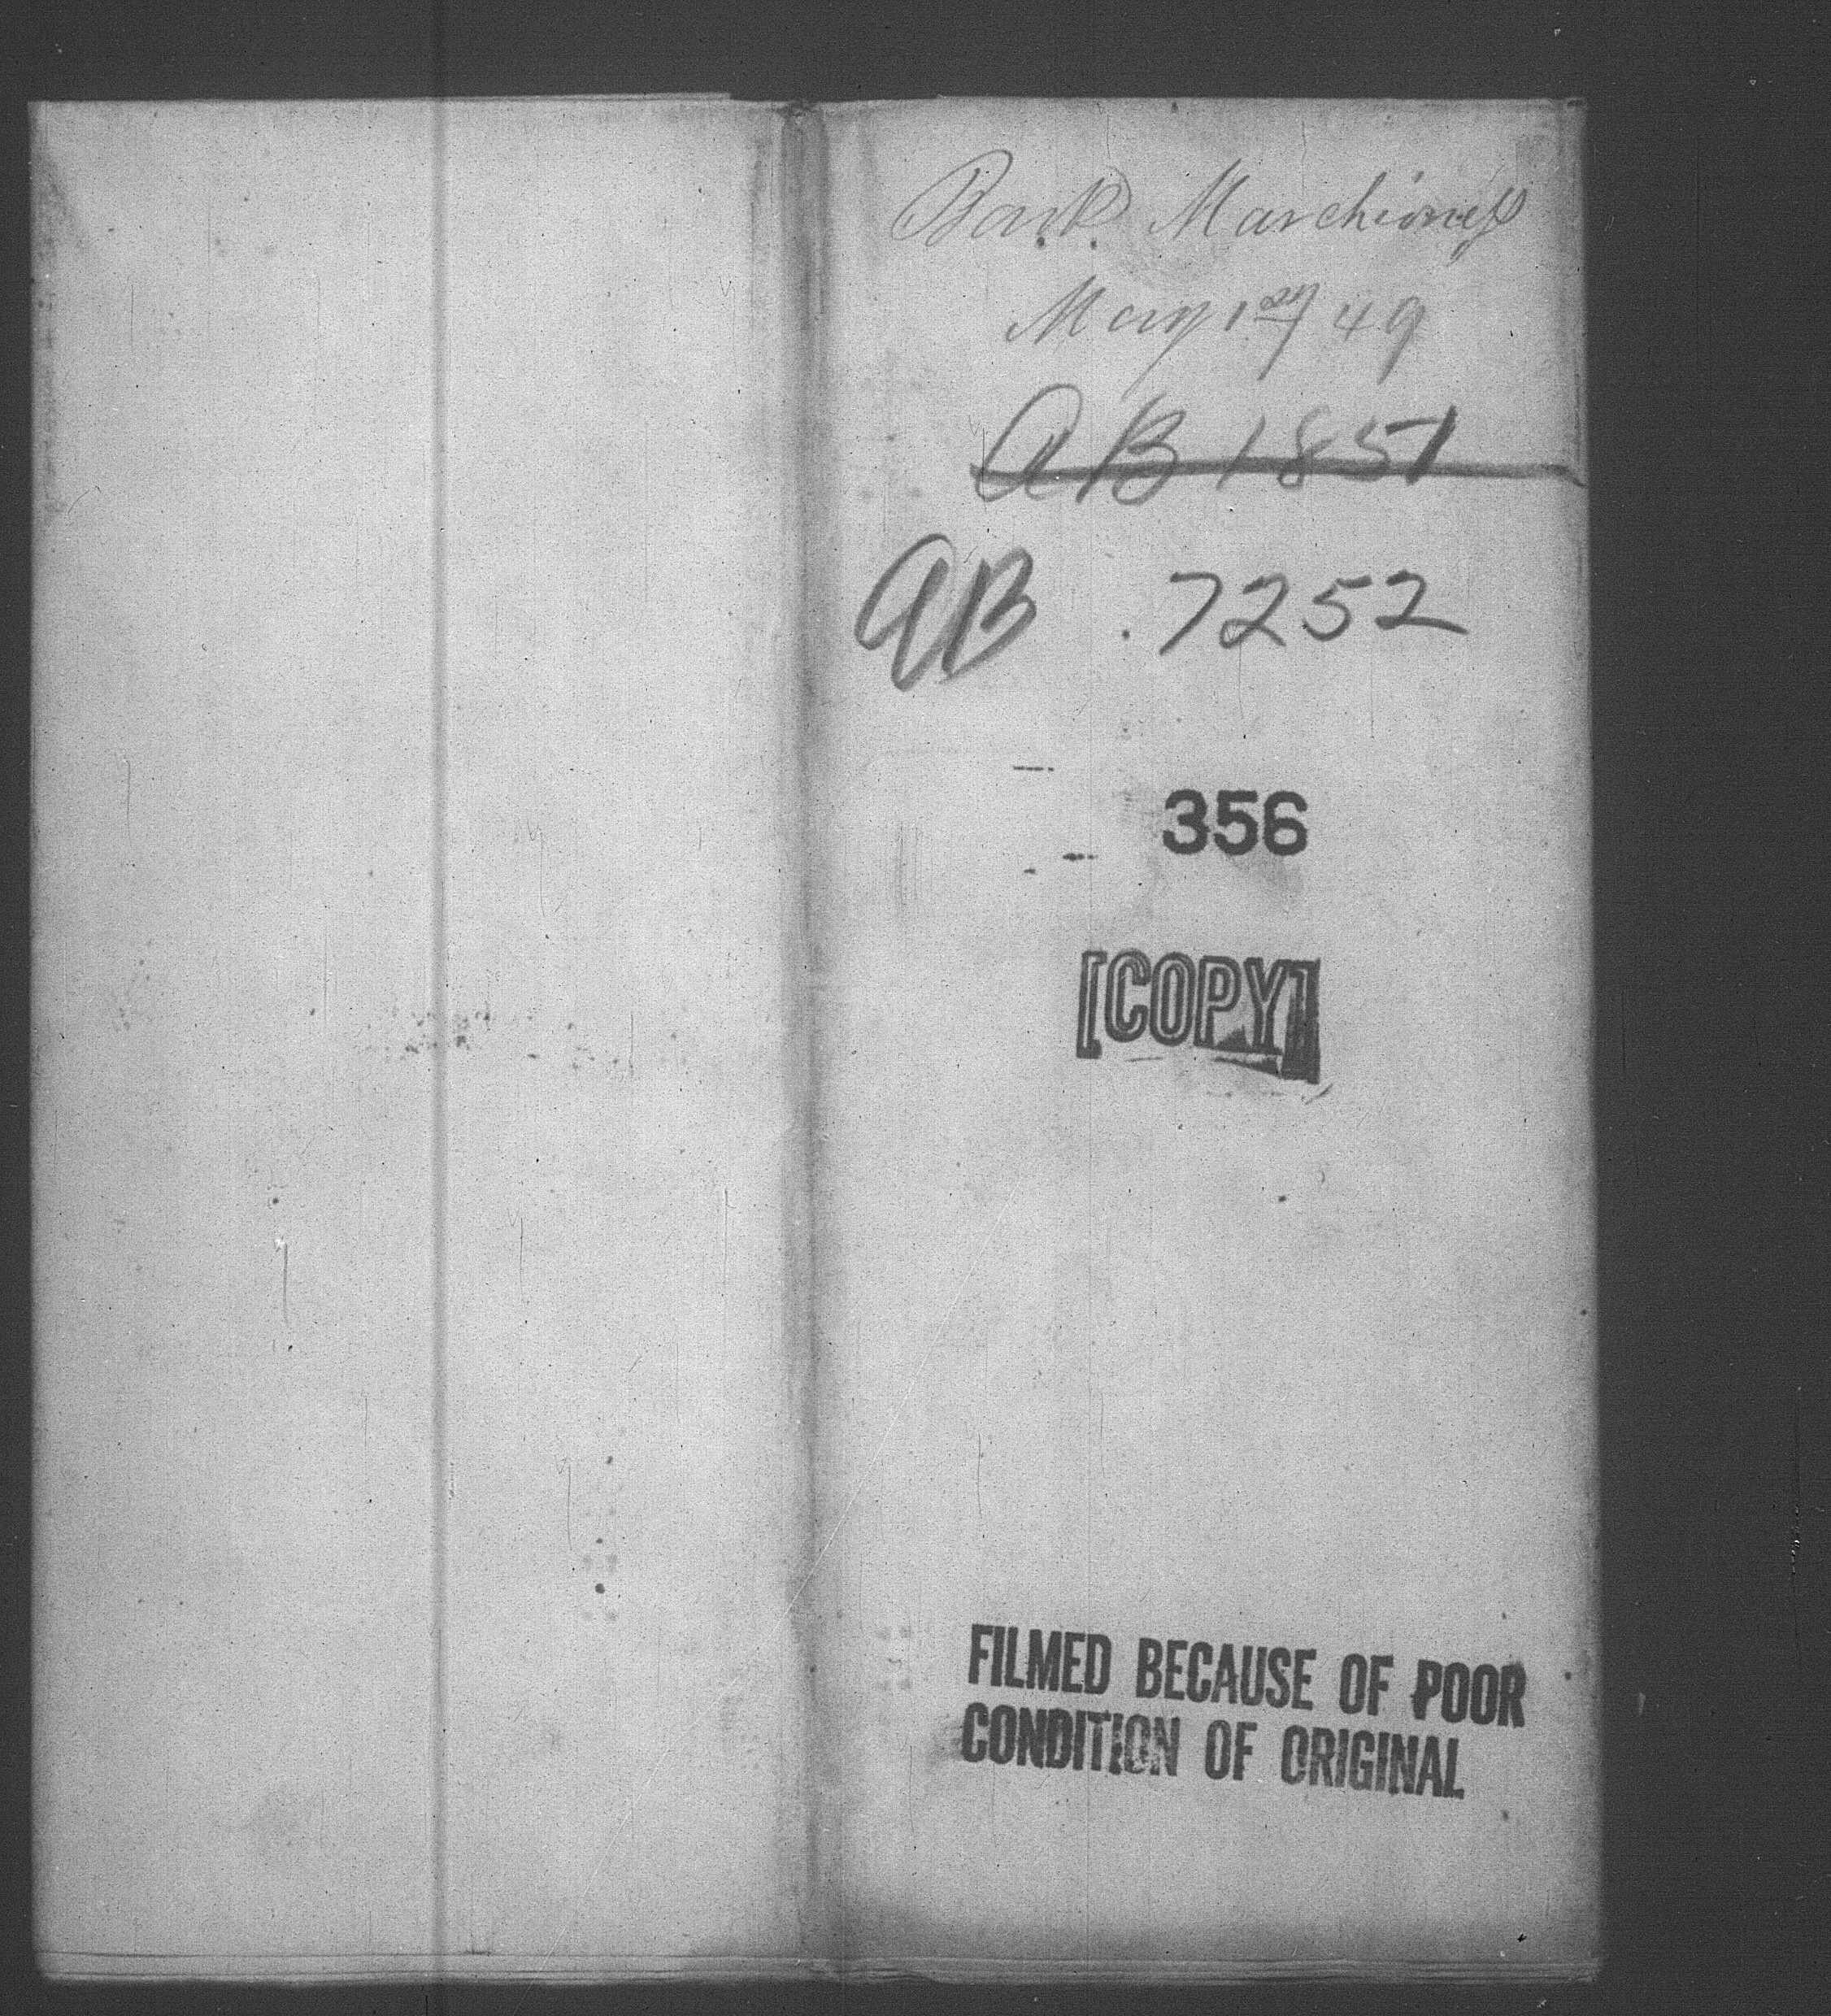 Bark Marchioness
May 1st 49
AB 1851
AB 7252
356
[COPY]
FILMED BECAUSE OF POOR
CONDITION OF ORIGINAL